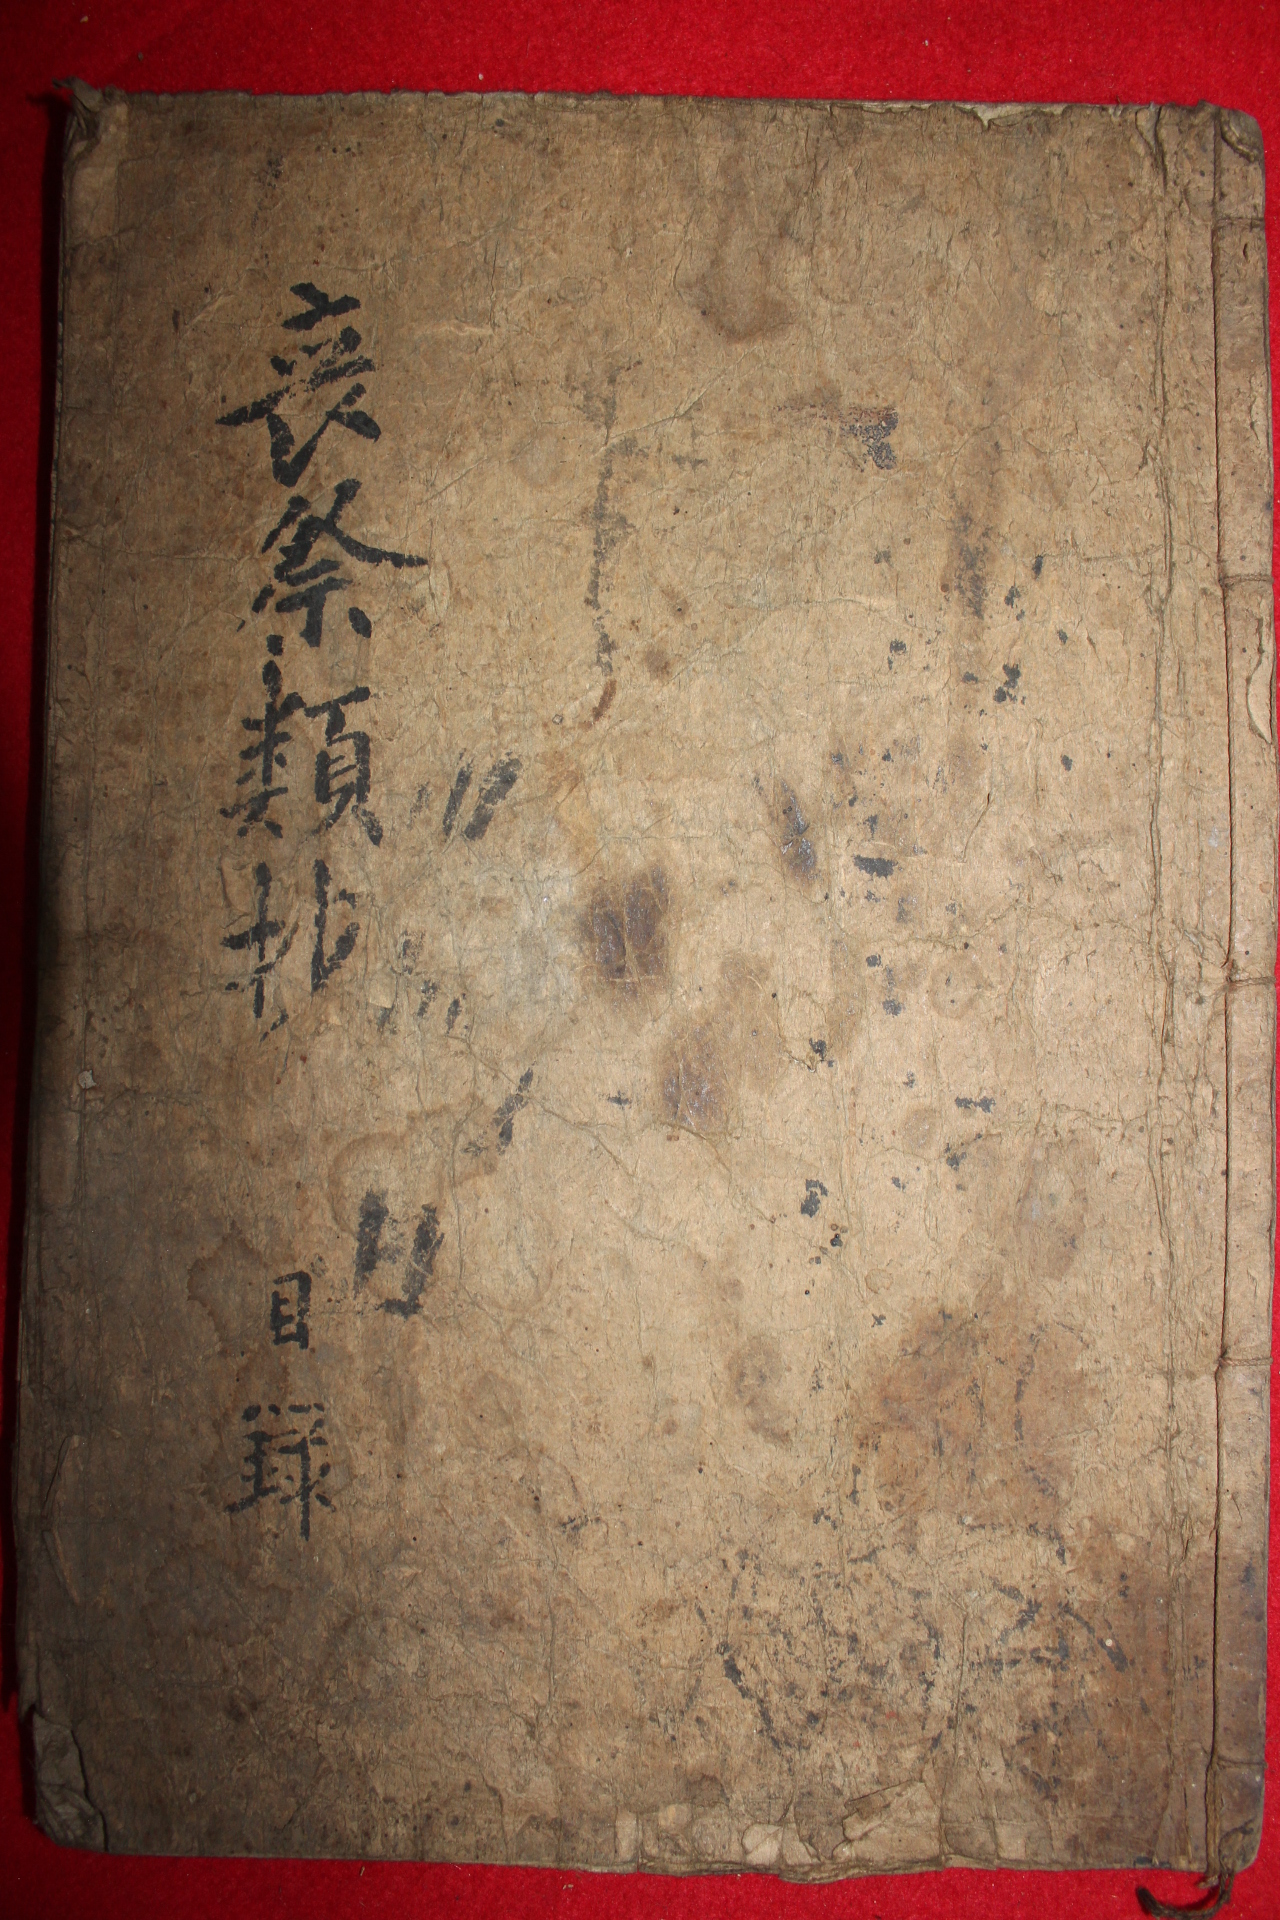 喪祭類抄 目録